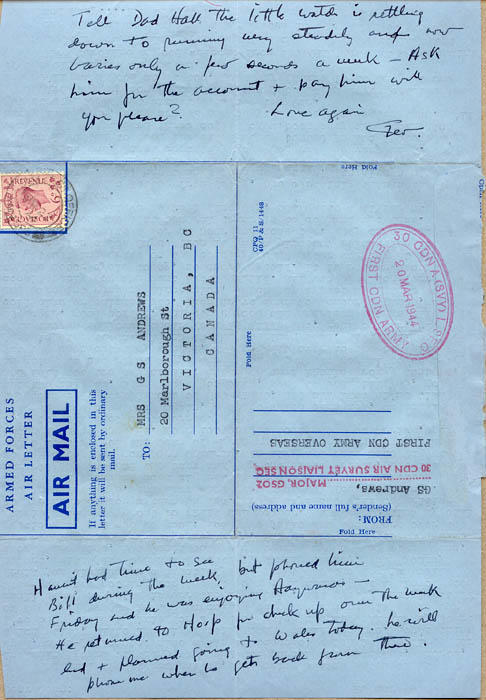 Tell Dad Hall the little watch is settling
down to running very steadily and now
varies only a few seconds a week – Ask
him for the account + pay him will
you please?
Love again
Geo.
Fold Here
REVENUE
POSTAGE
CPQ 11
40/P & S/1448
Fold Here
30 CDN A (SVY) L SEC
20 MAR 1944
FIRST CDN ARMY
ARMED FORCES
AIR LETTER
AIR MAIL
If anything is enclosed in this
letter it will be sent by ordinary
mail.
TO: MRS G S ANDREWS
20 Marlborough St
VICTORIA, BC
CANADA
FROM:
(Sender's full name and address)
GS Andrews,
MAJOR, GSO2
30 CDN AIR SURVEY LIAISON SEC
FIRST CDN ARMY OVERSEAS
Fold Here
Haven't had time to see
Bill during the week, but phoned him
Friday and he was enjoying Haywards –
He returned to Hosp for check up over the week
end + planned going to Wales today. he will
phone me when he gets back from there.